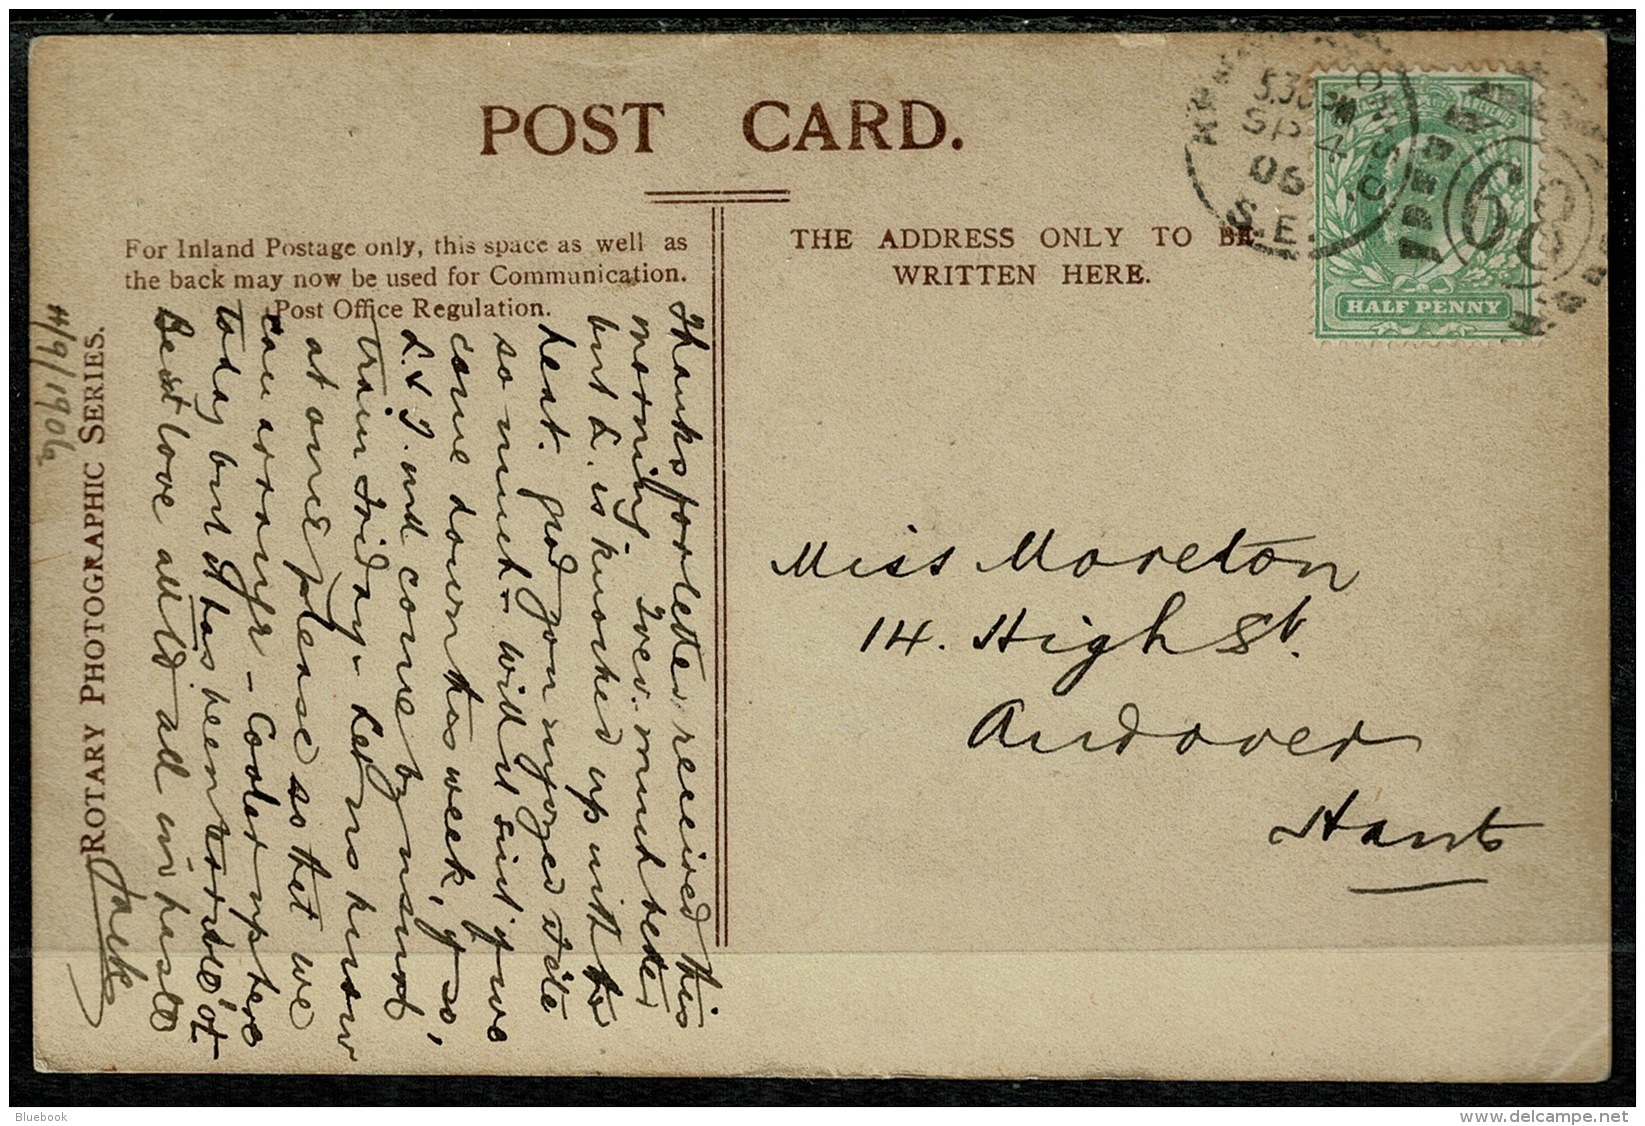 POST CARD.
For Inland Postage only, this space as well as
the back may now be used for Communication.
Post Office Regulation.
THE ADDRESS ONLY TO BE
WRITTEN HERE.
5.30 PM
SP 4
06
S.E.
63
HALF PENNY
Miss Moreton
14. High St.
Andover
Hants
Thanks for letter received this
morning. much better
but L. is knocked up with the
heat. glad you enjoyed Fête
so much – will it suit if we
come down this week, if so,
L. & I. come by
train Friday – Let us know
at once please so that we
can arrange – Cooler up here
today but it has been terrible
Best love all in haste
Jack
ROTARY PHOTOGRAPHIC SERIES.
4/9/1906
Bluebook
delcampe.net